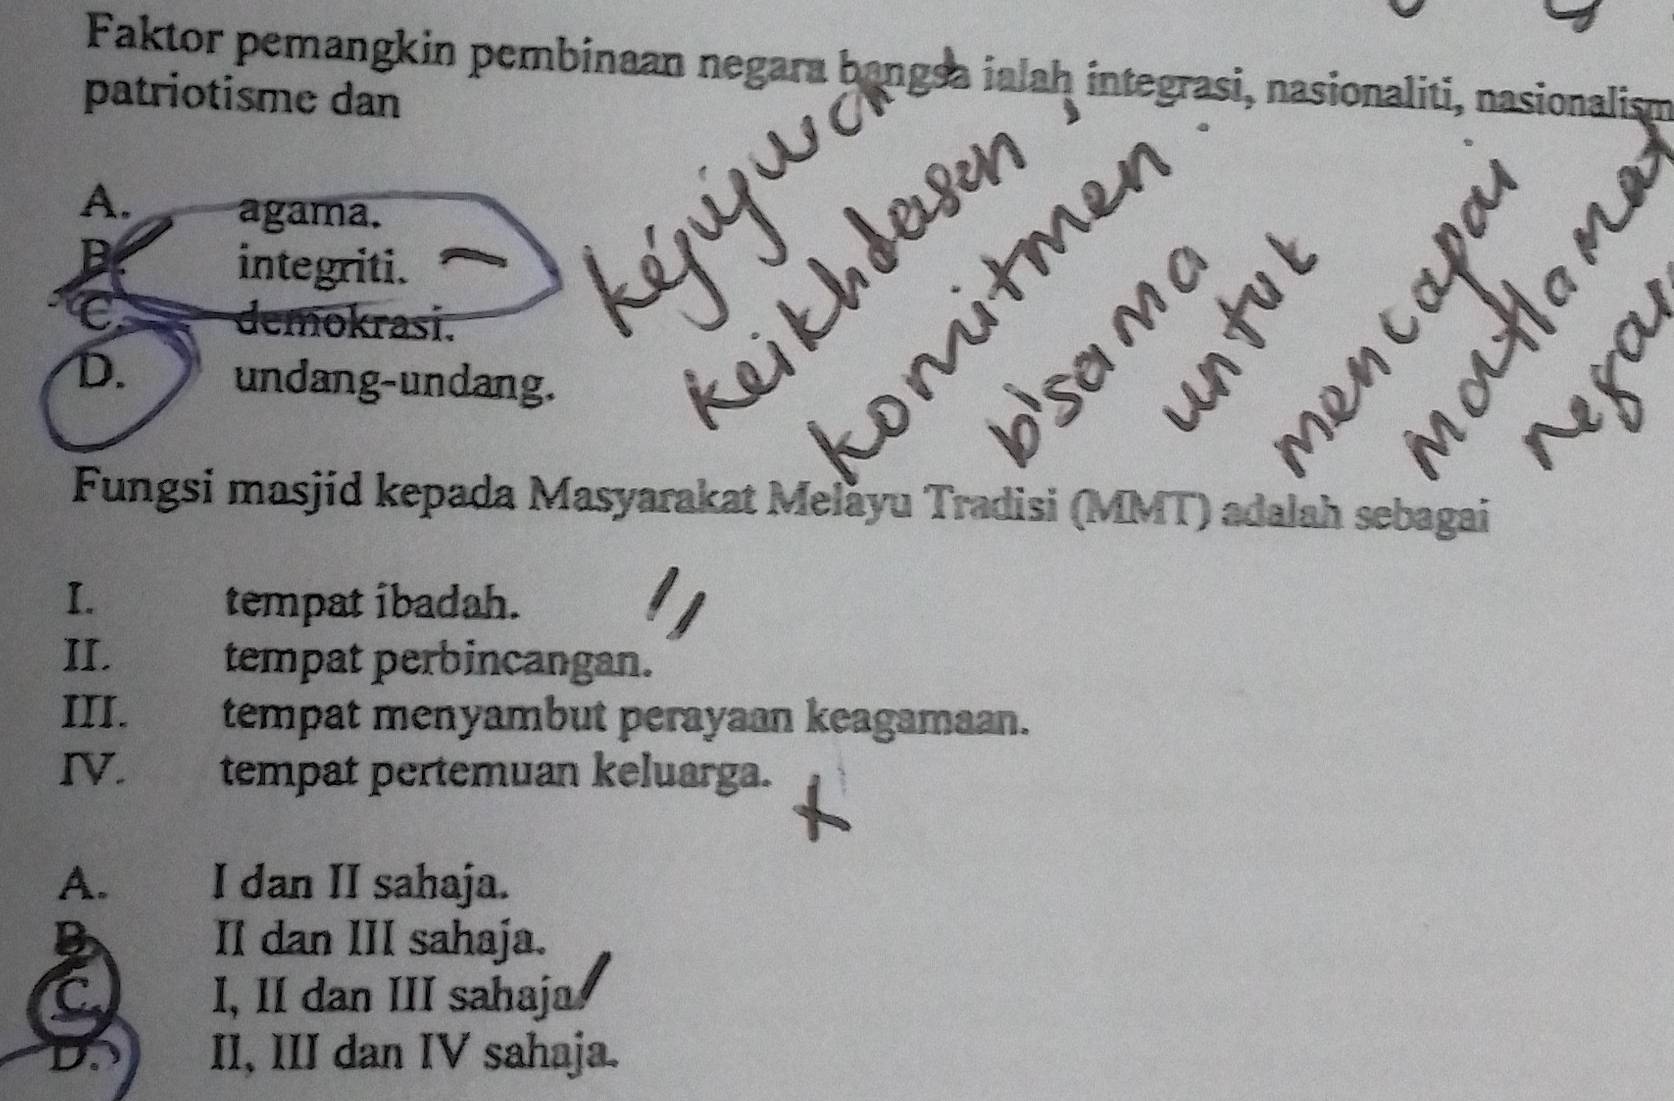 Faktor pemangkin pembinaan negara bangsa ialah integrasi, nasionaliti, nasionalism
patriotisme dan
A. agama.
B. integriti.
C. demokrasi.
D. undang-undang.
komitmen
bisama
untuk
mencapai
matlamat
negar
Fungsi masjid kepada Masyarakat Melayu Tradisi (MMT) adalah sebagai
I. tempat ibadah.
II. tempat perbincangan.
III. tempat menyambut perayaan keagamaan.
IV. tempat pertemuan keluarga.
A. I dan II sahaja.
B. II dan III sahaja.
C. I, II dan III sahaja
D. II, III dan IV sahaja.